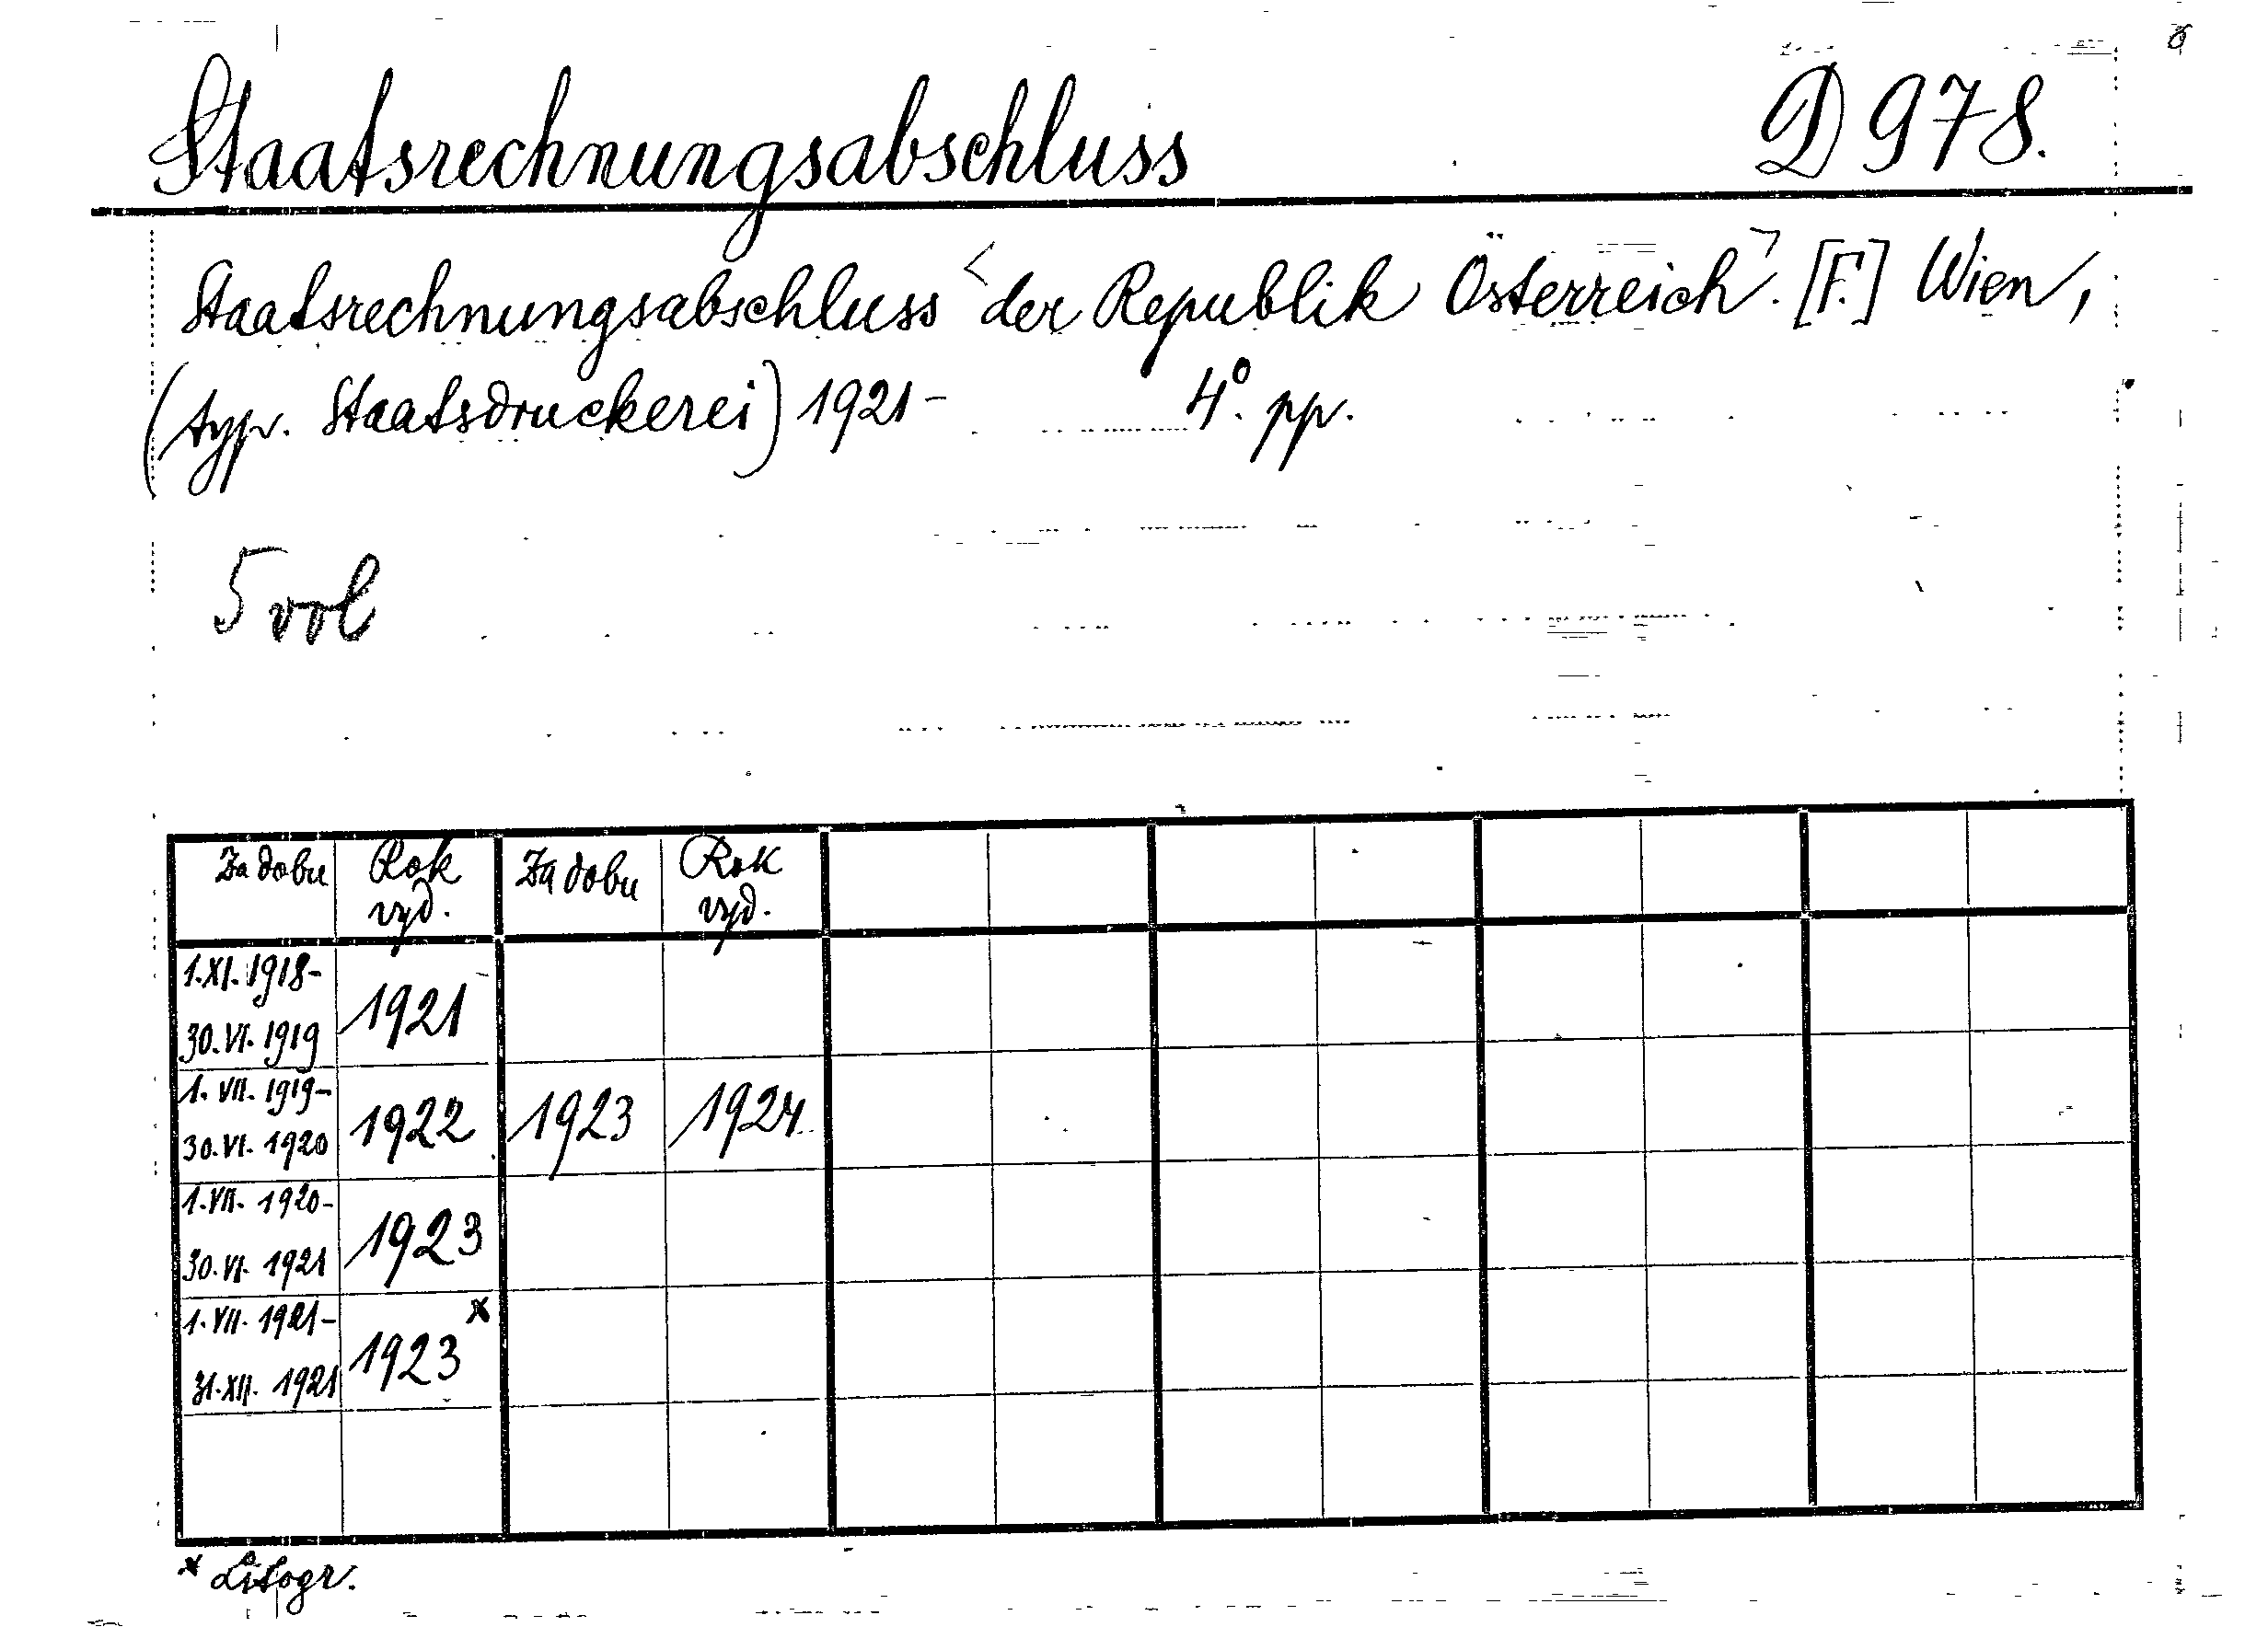 Staatsrechnungsabschluss D 978.
Staatsrechnungsabschluss <der Republik Österreich>. [F.] Wien,
(typ. Staatsdruckerei) 1921- 4°. pp.
5 vol
Za dobu Rok vyd. Za dobu Rok vyd.
1.XI.1918-
30.VI.1919 1921
1.VII.1919-
30.VI.1920 1922 1923 1924
1.VII.1920-
30.VI.1921 1923
1.VII.1921-
31.XII.1921 1923 x
x Litogr.